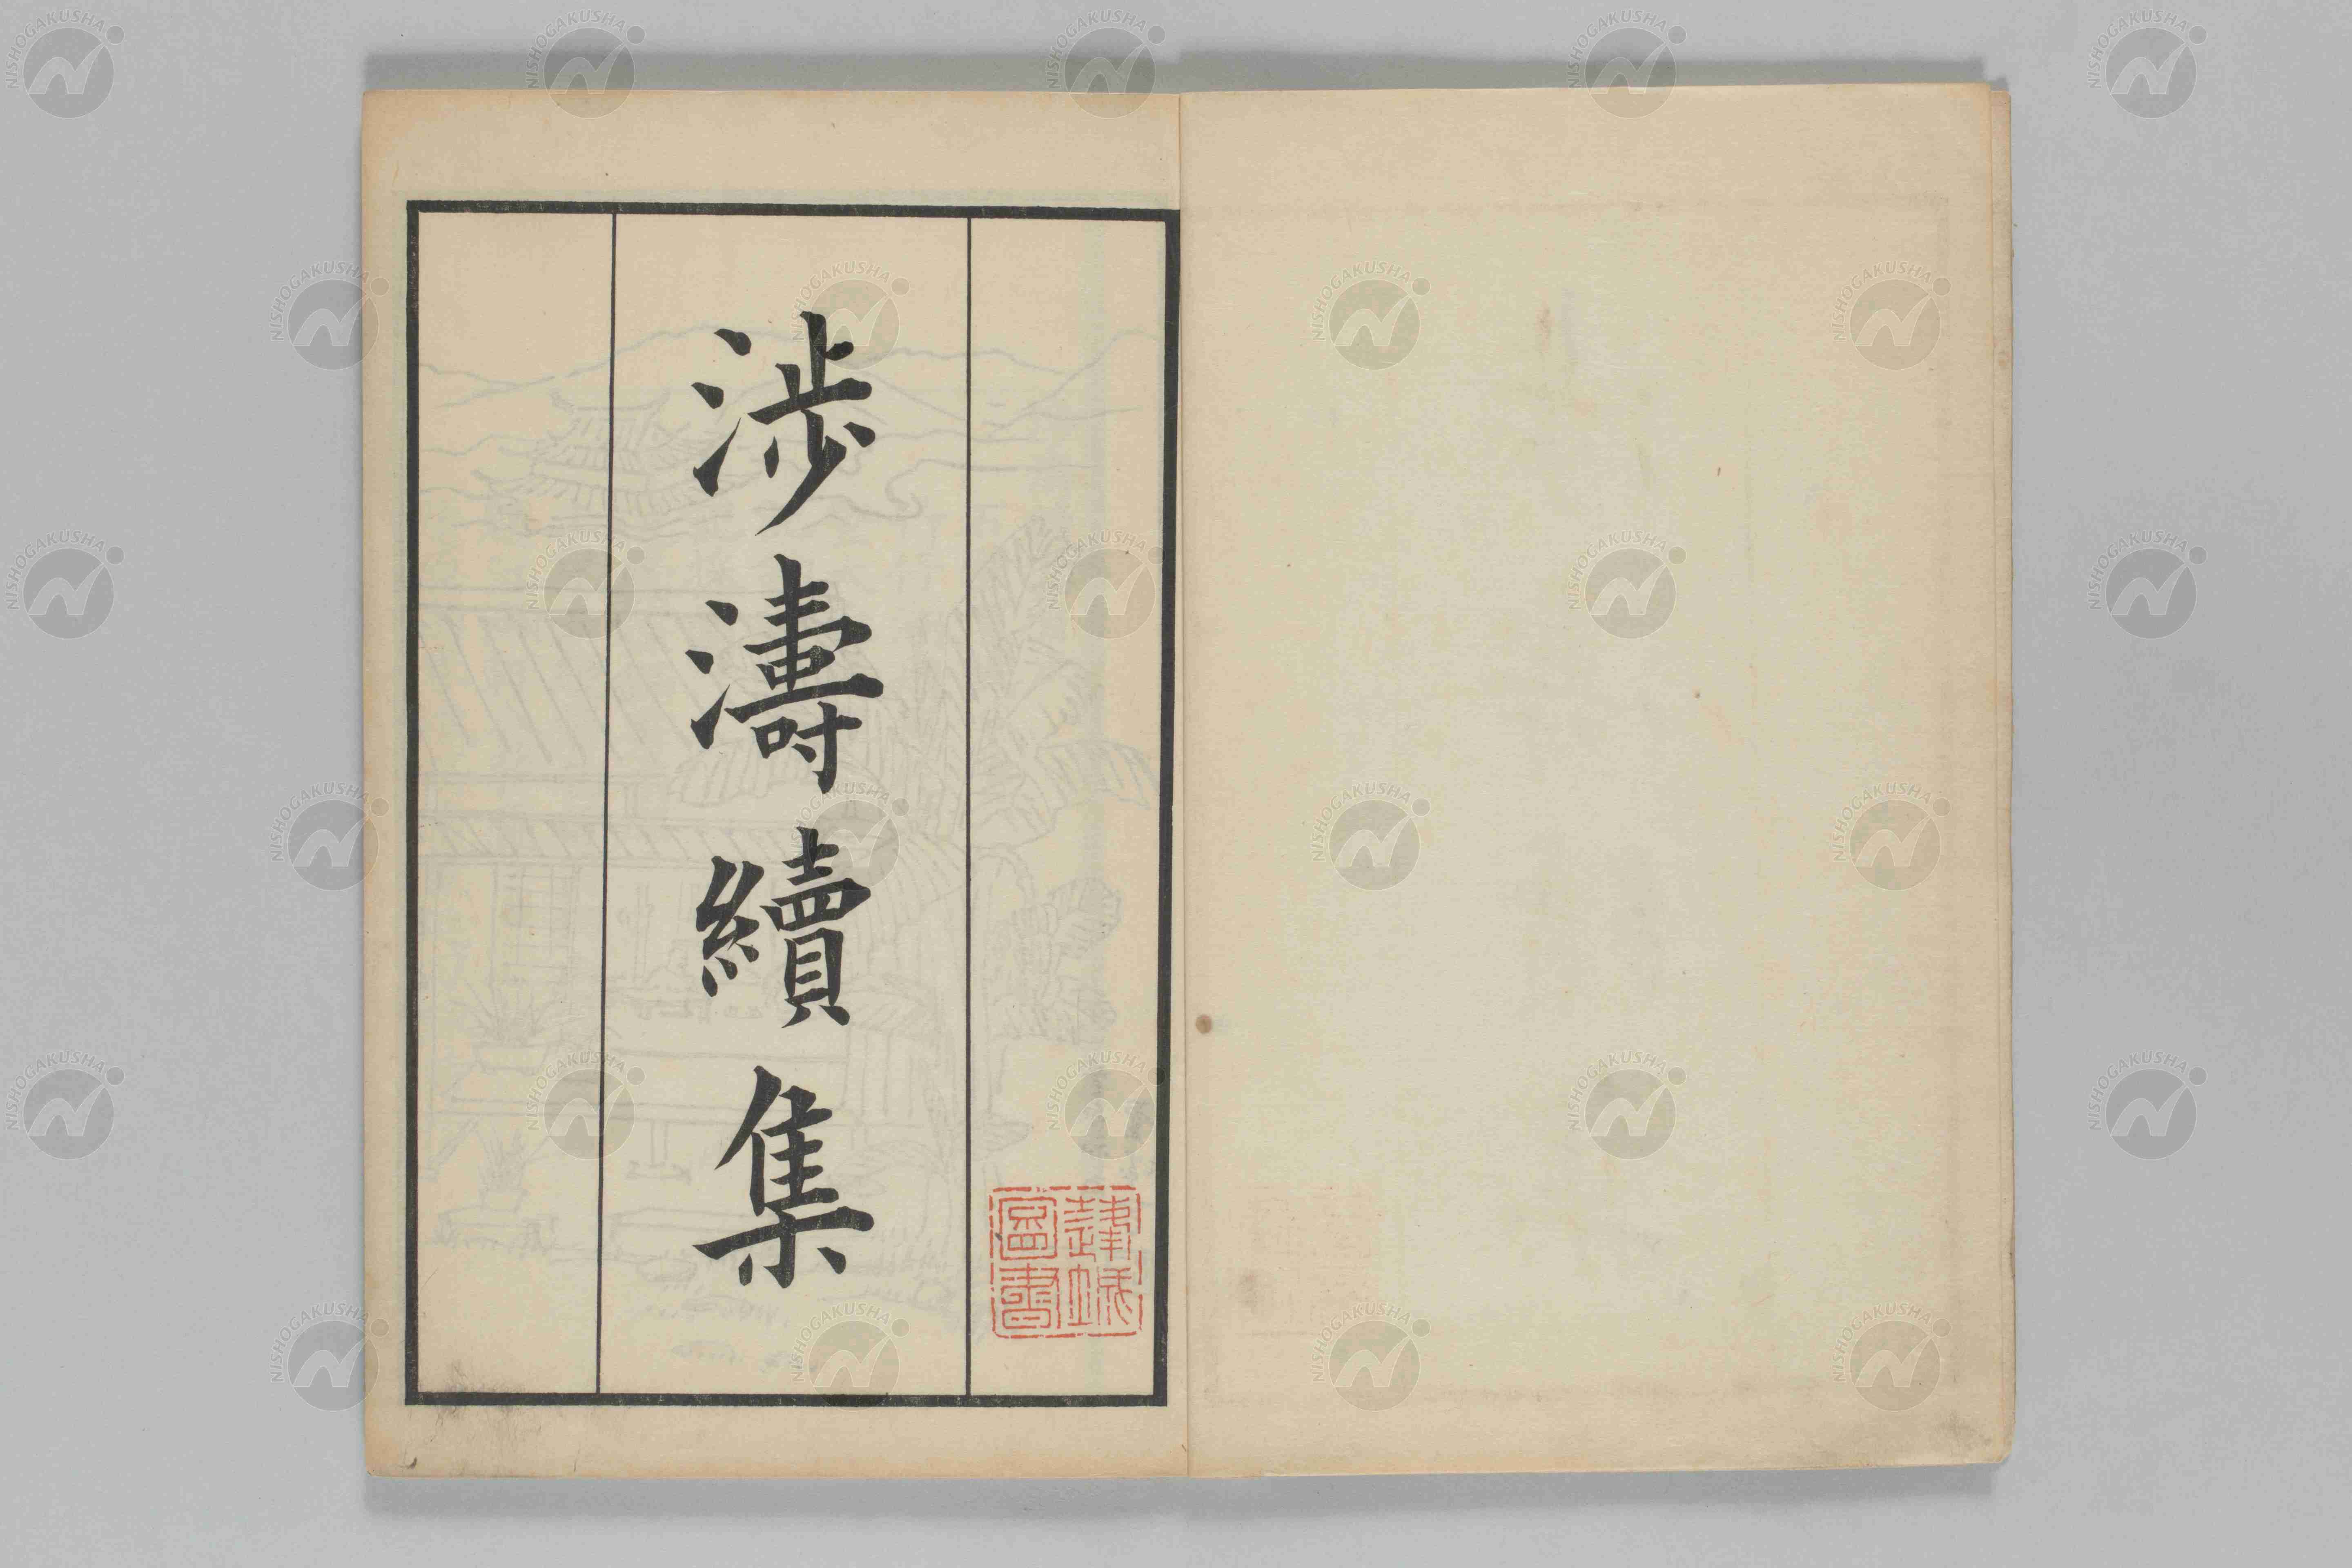 涉濤續集
圖書
NISHOGAKUSHA